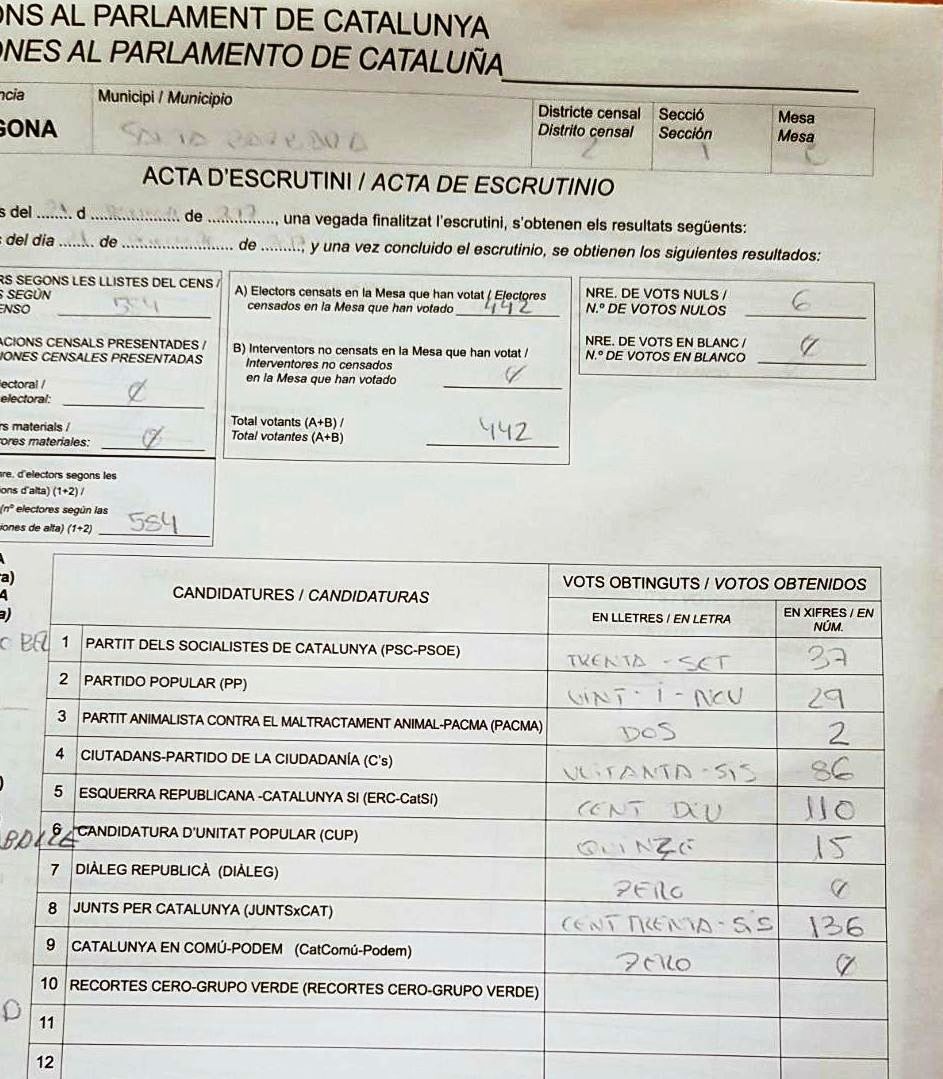 ONS AL PARLAMENT DE CATALUNYA
ONES AL PARLAMENTO DE CATALUÑA
ncia Municipi / Municipio Districte censal Secció Mesa
Distrito censal Sección Mesa
GONA 2 1
ACTA D'ESCRUTINI / ACTA DE ESCRUTINIO
s del ........ d ...................... de ............., una vegada finalitzat l'escrutini, s'obtenen els resultats següents:
s del día ........ de ...................... de ..........., y una vez concluido el escrutinio, se obtienen los siguientes resultados:
RS SEGONS LES LLISTES DEL CENS /
S SEGÚN
ENSO
ACIONS CENSALS PRESENTADES /
IONES CENSALES PRESENTADAS
ectoral /
electoral: 0
rs materials /
ores materiales: 0
re. d'electors segons les
ions d'alta) (1+2) /
(nº electores según las
iones de alta) (1+2) 584
A) Electors censats en la Mesa que han votat / Electores
censados en la Mesa que han votado 442
B) Interventors no censats en la Mesa que han votat /
Interventores no censados
en la Mesa que han votado 0
Total votants (A+B) /
Total votantes (A+B) 442
NRE. DE VOTS NULS /
N.º DE VOTOS NULOS 6
NRE. DE VOTS EN BLANC /
N.º DE VOTOS EN BLANCO 0
A
ra)
A
a)
CANDIDATURES / CANDIDATURAS VOTS OBTINGUTS / VOTOS OBTENIDOS
EN LLETRES / EN LETRA EN XIFRES / EN
NÚM.
1 PARTIT DELS SOCIALISTES DE CATALUNYA (PSC-PSOE) TRENTA-SET 37
2 PARTIDO POPULAR (PP) VINT-I-NOU 29
3 PARTIT ANIMALISTA CONTRA EL MALTRACTAMENT ANIMAL-PACMA (PACMA) DOS 2
4 CIUTADANS-PARTIDO DE LA CIUDADANÍA (C's) VUITANTA-SIS 86
5 ESQUERRA REPUBLICANA -CATALUNYA SI (ERC-CatSí) CENT DEU 110
6 CANDIDATURA D'UNITAT POPULAR (CUP) QUINZE 15
7 DIÀLEG REPUBLICÀ (DIÀLEG) ZERO 0
8 JUNTS PER CATALUNYA (JUNTSxCAT) CENT TRENTA-SIS 136
9 CATALUNYA EN COMÚ-PODEM (CatComú-Podem) ZERO 0
10 RECORTES CERO-GRUPO VERDE (RECORTES CERO-GRUPO VERDE)
11
12